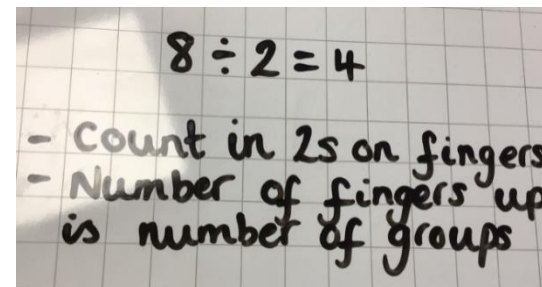 8 ÷ 2 = 4
- Count in 2s on fingers
- Number of fingers up
is number of groups